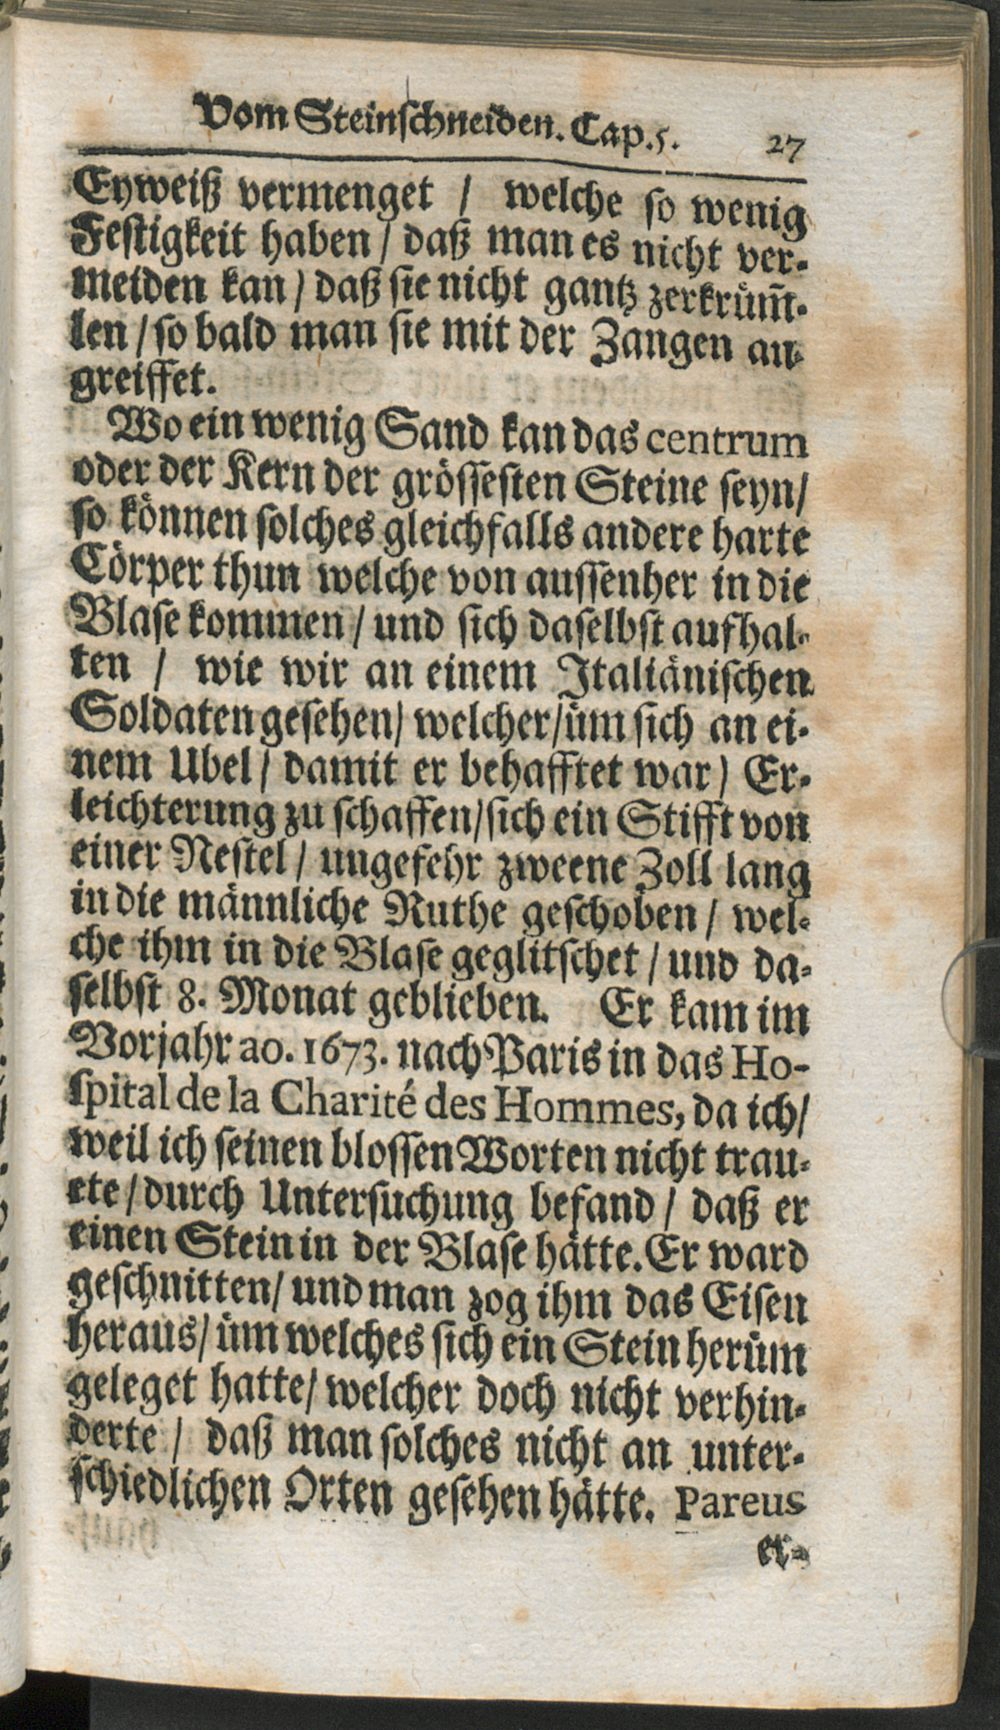 Vom Steinschneiden. Cap. 5. 27
Eyweiß vermenget / welche so wenig
Festigkeit haben / daß man es nicht ver-
meiden kan / daß sie nicht gantz zerkrüm̃-
len / so bald man sie mit der Zangen an-
greiffet.
Wo ein wenig Sand kan das centrum
oder der Kern der grössesten Steine seyn /
so können solches gleichfalls andere harte
Cörper thun welche von aussenher in die
Blase kommen / und sich daselbst aufhal-
ten / wie wir an einem Italiänischen
Soldaten gesehen / welcher / üm sich an ei-
nem Ubel / damit er behafftet war / Er-
leichterung zu schaffen / sich ein Stifft von
einer Nestel / ungefehr zweene Zoll lang
in die männliche Ruthe geschoben / wel-
che ihm in die Blase geglitschet / und da-
selbst 8. Monat geblieben. Er kam im
Vorjahr ao. 1673. nach Paris in das Ho-
spital de la Charité des Hommes, da ich /
weil ich seinen blossen Worten nicht trau-
ete / durch Untersuchung befand / daß er
einen Stein in der Blase hätte. Er ward
geschnitten / und man zog ihm das Eisen
heraus / üm welches sich ein Stein herüm
geleget hatte / welcher doch nicht verhin-
derte / daß man solches nicht an unter-
schiedlichen Orten gesehen hätte. Pareus
er-